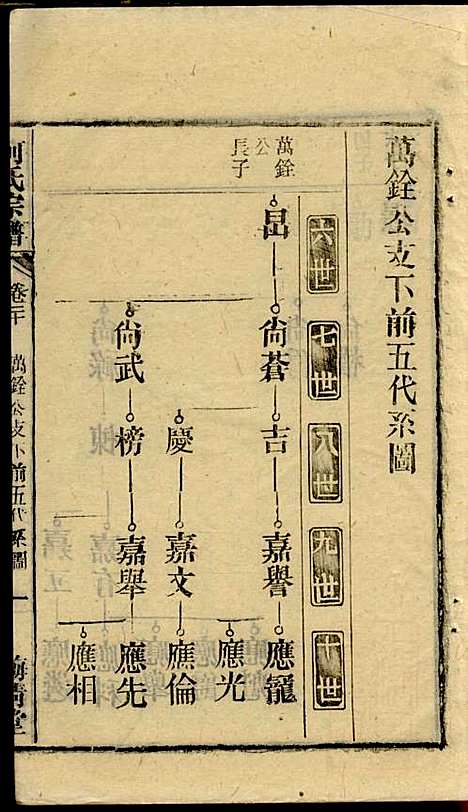 萬銓公支下前五代系圖
六世
七世
八世
九世
十世
萬銓
公
長子
昌
尙蒼
吉
嘉譽
應寵
應光
慶
嘉文
應倫
尙武
榜
嘉舉
應先
應相
氏宗譜
卷二十
萬銓公支下前五代系圖
一